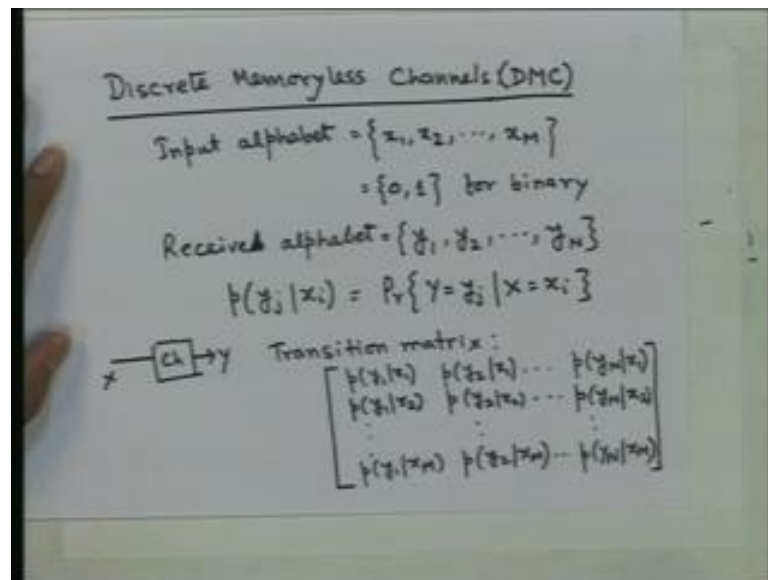 Discrete Memoryless Channels (DMC)
Input alphabet = {x₁, x₂, ..., x_M}
= {0, 1} for binary
Received alphabet = {y₁, y₂, ..., y_N}
p(y_j|x_i) = Pr{Y = y_j | X = x_i}
X Ch Y Transition matrix:
[p(y₁|x₁) p(y₂|x₁) ... p(y_N|x₁)
p(y₁|x₂) p(y₂|x₂) ... p(y_N|x₂)
⋮ ⋮ ⋮
p(y₁|x_M) p(y₂|x_M) ... p(y_N|x_M)]